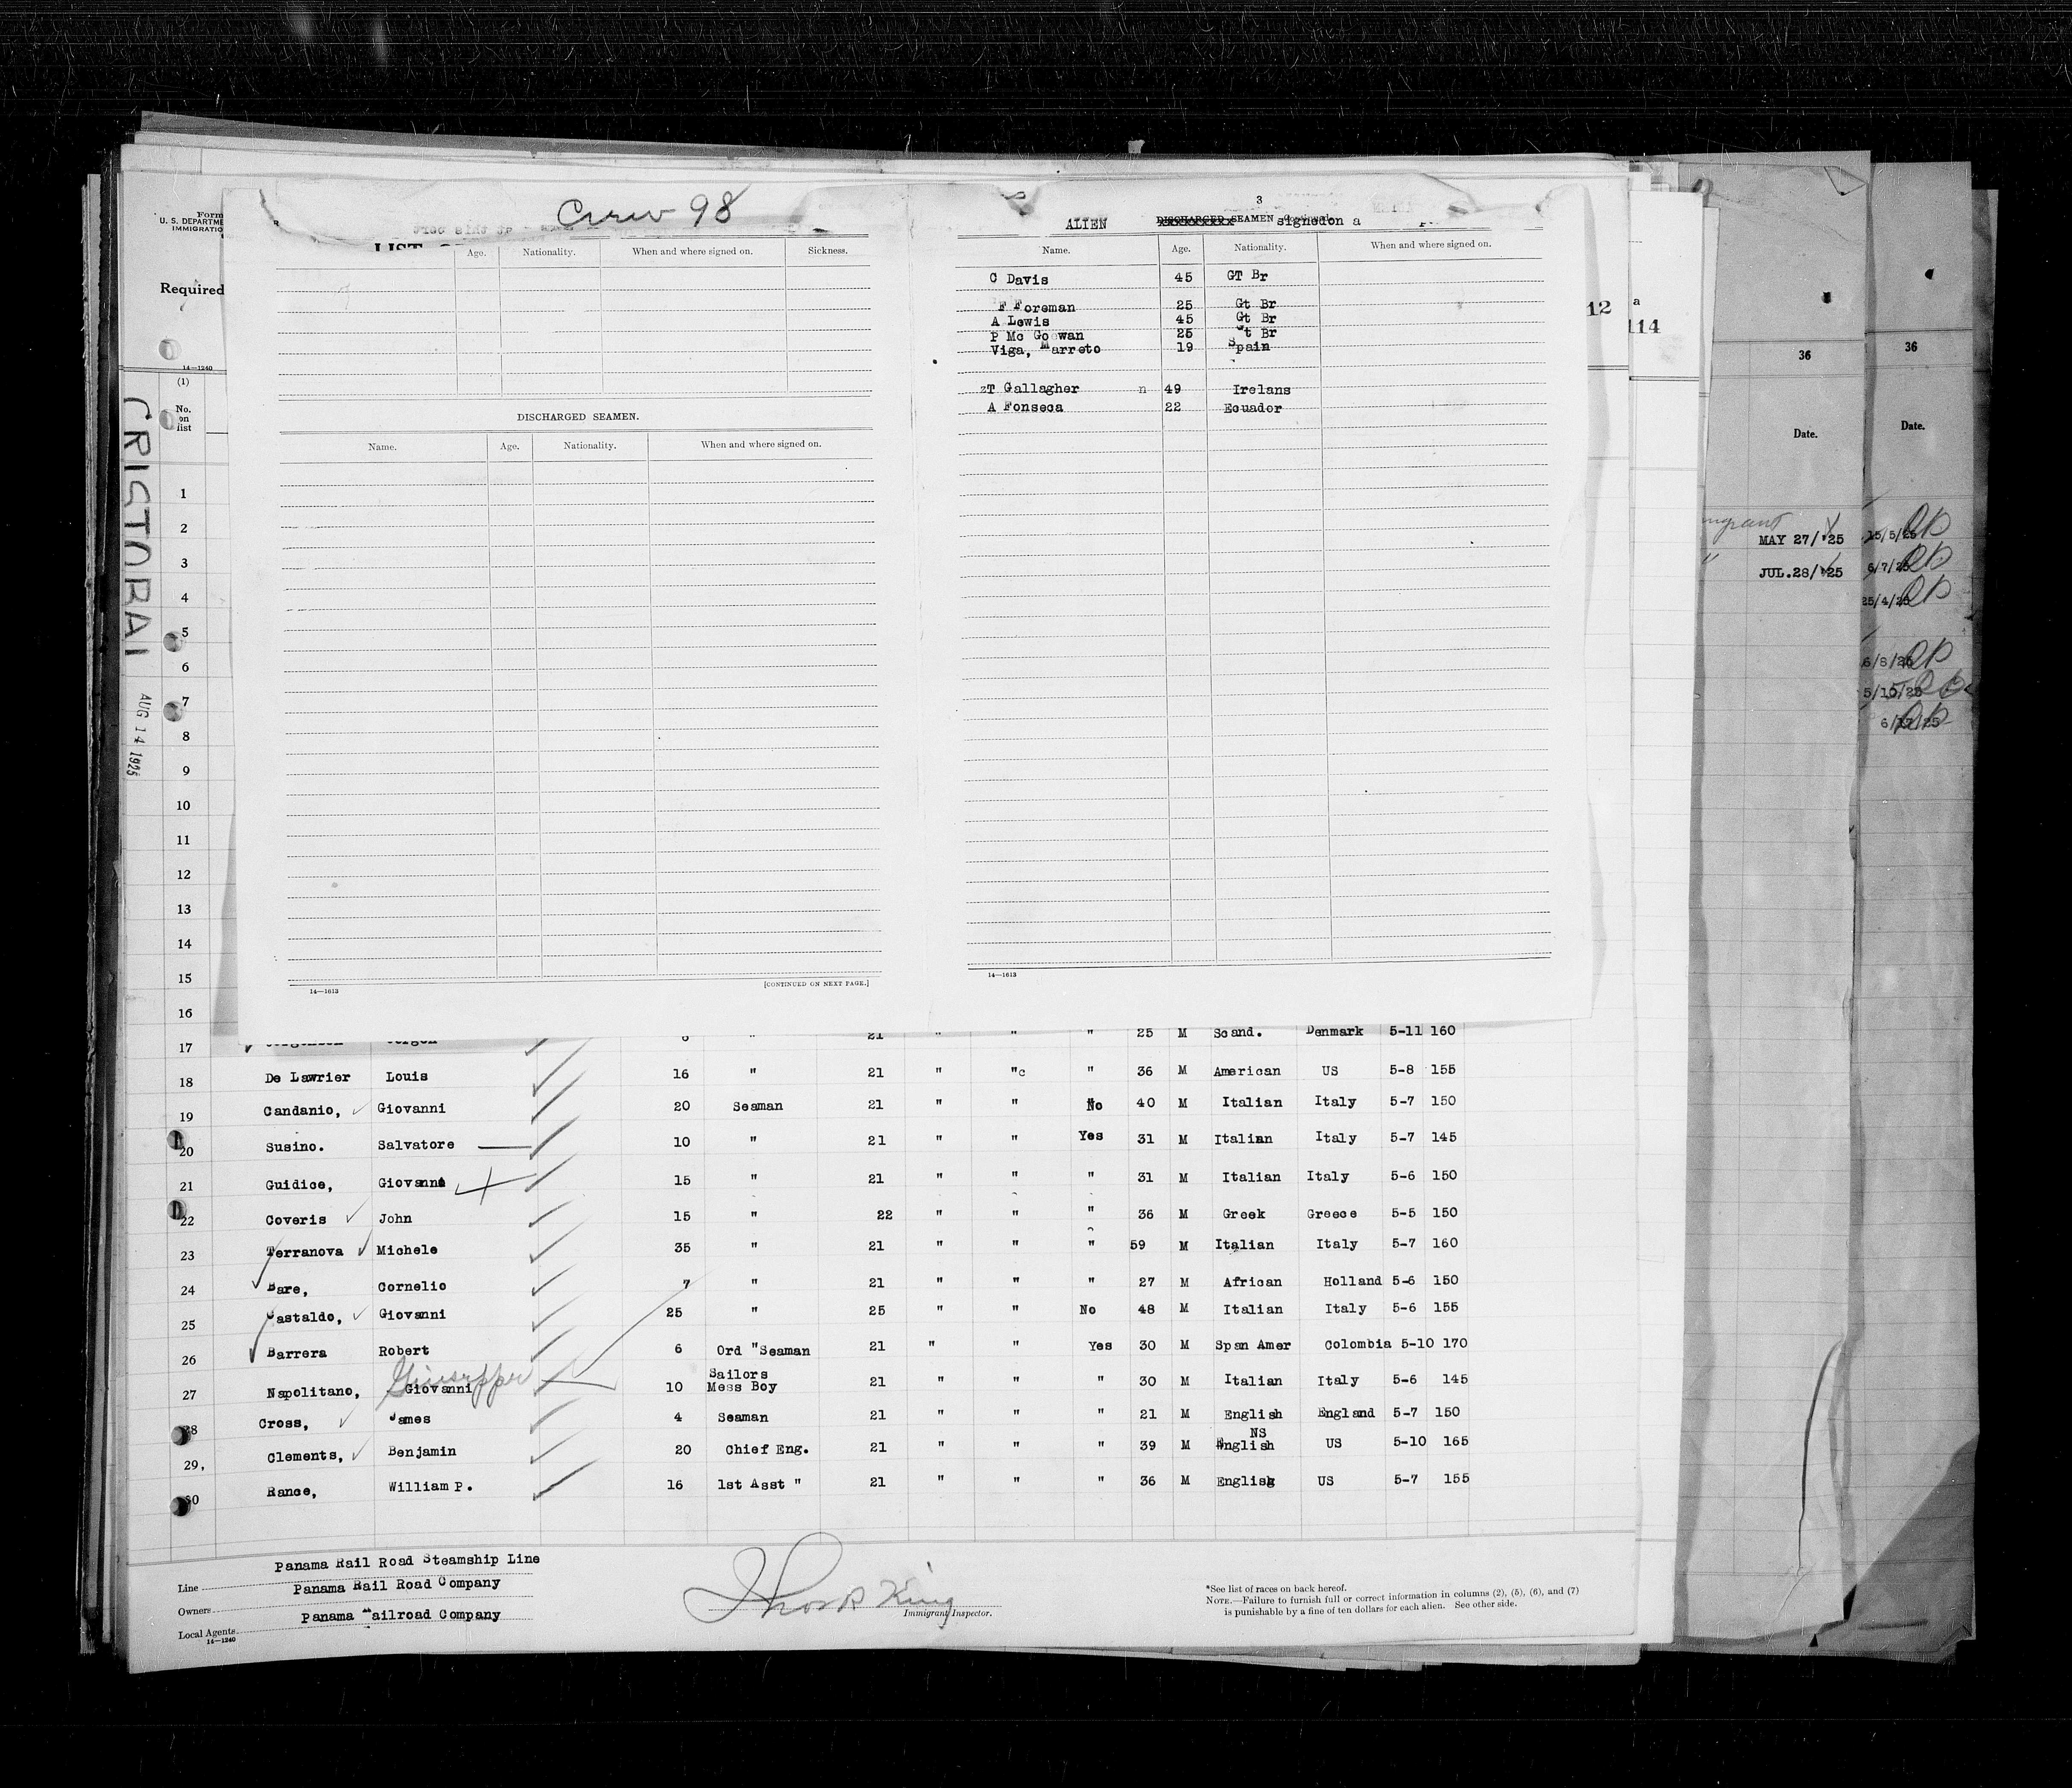 Crew 98
Form
U. S. DEPARTME
IMMIGRATIO
Required
14—1240
(1)
No.
on
list
CRISTOBAL
AUG 14 1925
Age. Nationality. When and where signed on. Sickness.
DISCHARGED SEAMEN.
Name. Age. Nationality. When and where signed on.
14—1613
[CONTINUED ON NEXT PAGE.]
3
ALIEN DISCHARGED SEAMEN signedon a
Name. Age. Nationality. When and where signed on.
C Davis 45 GT Br
F Foreman 25 Gt Br
A Lewis 45 Gt Br
P Mc Gowan 25 Gt Br
Viga, Marreto 19 Spain
zT Gallagher n 49 Irelans
A Fonseca 22 Ecuador
14—1613
12
a
114
36
Date.
MAY 27/'25
JUL.28/'25
36
Date.
1
2
3
4
5
6
7
8
9
10
11
12
13
14
15
16
17 21 " " " 25 M Scand. Denmark 5-11 160
18 De Lawrier Louis 16 " 21 " "c " 36 M American US 5-8 155
19 Candanio, Giovanni 20 Seaman 21 " " No 40 M Italian Italy 5-7 150
20 Susino. Salvatore 10 " 21 " " Yes 31 M Italian Italy 5-7 145
21 Guidice, Giovanni 15 " 21 " " " 31 M Italian Italy 5-6 150
22 Coveris John 15 " 22 " " " 36 M Greek Greece 5-5 150
23 Terranova Michele 35 " 21 " " " 59 M Italian Italy 5-7 160
24 Bare, Cornelio 7 " 21 " " " 27 M African Holland 5-6 150
25 Castaldo, Giovanni 25 " 25 " " No 48 M Italian Italy 5-6 155
26 Barrera Robert 6 Ord "Seaman 21 " " Yes 30 M Span Amer Colombia 5-10 170
Giuseppe Sailors
27 Napolitano, Giovanni 10 Mess Boy 21 " " " 30 M Italian Italy 5-6 145
28 Cross, James 4 Seaman 21 " " " 21 M English England 5-7 150
NS
29, Clements, Benjamin 20 Chief Eng. 21 " " " 39 M English US 5-10 165
30 Rance, William P. 16 1st Asst " 21 " " " 36 M English US 5-7 155
Line Panama Rail Road Steamship Line
Owners Panama Rail Road Company
Local Agents Panama Railroad Company
14—1240
Immigrant Inspector.
*See list of races on back hereof.
NOTE.—Failure to furnish full or correct information in columns (2), (5), (6), and (7)
is punishable by a fine of ten dollars for each alien. See other side.